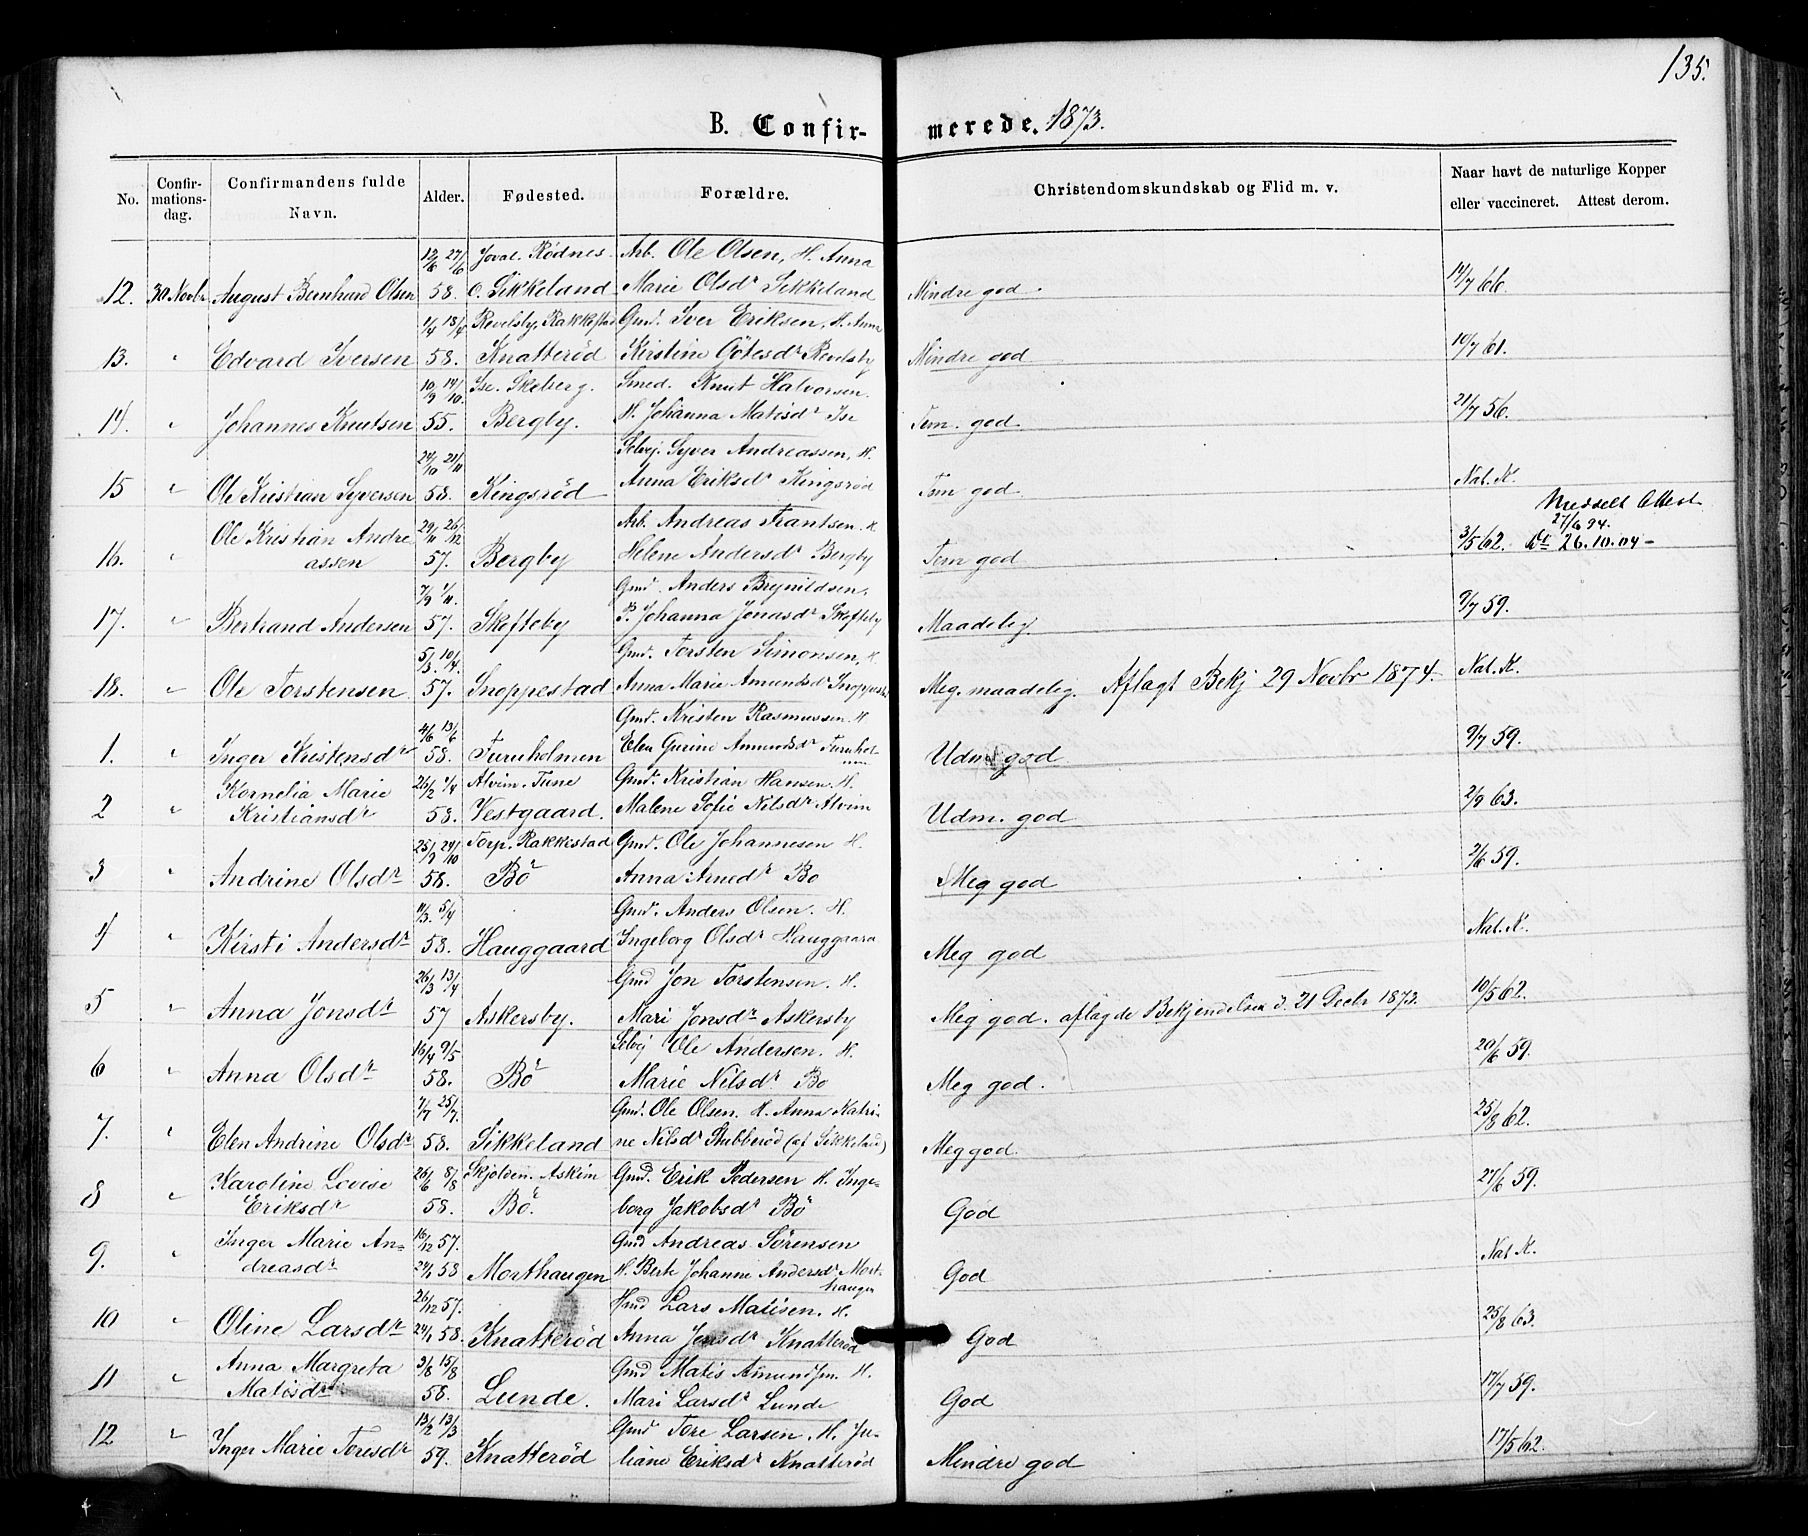 135.
B. Confir- merede. 1873.
No. Confir- mations- dag. Confirmandens fulde Navn. Alder. Fødested. Forældre. Christendomskundskab og Flid m. v. Naar havt de naturlige Kopper eller vaccineret. Attest derom.
12/6 27/6 Rødnes Arb. Ole Olsen, H. Anna
12. 30 Novbr August Bernhard Olsen 58. Sikkeland Marie Olsdr Sikkeland Mindre god. 14/7 66.
1/4 18/4 Revelsby, Rakkestad Gmd. Iver Eriksen, H. Anna
13. " Edvard Iversen 58. Knatterød Kirstine Götesdr Revelsby Mindre god 10/7 61.
10/9 14/10 Ise. Skeberg. Smed. Knut Halvorsen.
14. " Johannes Knutsen 55. Bergby. H. Johanna Matisdr Ise Tem. god. 21/7 56.
24/10 21/11 Selvej. Syver Andreassen, H.
15 " Ole Kristian Syversen 58. Kingsrød Anna Eriksdr Kingsrød Tem god. Nat. K.
Meddelt Attest
Ole Kristian Andre 29/11 26/12 Arb. Andreas Frantsen. H. 27/6 94.
16. " assen 57. Bergby Helene Andersdr Bergby Tem god 3/5 62. do 26.10.04 -
7/9 1/11. Gmd. Anders Brynildsen,
17. " Bertrand Andersen 57. Skofteby P. Johanna Jonasdr Skofteby Maadelig. 9/7 59.
5/3. 10/4. Gmd. Torsten Simonsen, H.
18. " Ole Torstensen 57. Snoppestad Anna Marie Amundsdr Snoppestad Meg. maadelig. Aflagt Bekj 29 Novbr 1874. Nat. K.
4/6 13/6 Gmd. Kristen Rasmussen. H.
1. " Inger Kristensdr 58. Furuholmen Elen Gurine Amundsdr Furuhol- men Udm. god 9/7 59.
Kornelia Marie 26/2 4/4 Alvim. Tune Gmd. Kristian Hansen. H.
2 " Kristiansdr 58. Vestgaard. Malene Sofie Nilsdr Alvim Udm. god 2/9 63.
25/9 24/10 Torp. Rakkestad Gmd. Ole Johannesen H.
3 " Andrine Olsdr 58. Bö Anna Arnedr Bö Meg god 2/6 59.
11/3. 5/4 Gmd. Anders Olsen. H.
4 " Kirsti Andersdr 58. Hauggaard Ingeborg Olsdr Hauggaard Meg god Nat. K.
26/3 13/4 Gmd Jon Torstensen. H.
5 " Anna Jonsdr 57 Askersby. Mari Jonsdr Askersby Meg god. aflagde Bekjendelsen d. 21 Decbr 1873. 10/5 62.
16/4 9/5 Selvej Ole Andersen. H.
6 " Anna Olsdr 58. Bö Marie Nilsdr Bö Meg god. 20/6 59.
7/7 25/7. Gmd. Ole Olsen. H. Anna Katri-
7. " Elen Andrine Olsdr 58. Sikkeland ne Nilsdr Stubberød (af Sikkeland) Meg god. 25/8 62.
Karoline Lovise 26/6 8/8 Skjolden. Askim Gmd. Erik Pedersen H. Inge-
8 " Eriksdr 58. Bö. borg Jakobsdr Bö God 27/6 59.
Inger Marie An- 16/12 57. Gmd Andreas Sörensen
9. " dreasdr 24/1 58 Morthaugen H. Berte Johanne Andersdr Mort- haugen God Nat K.
26/12 57. Hmd Lars Matisen. H.
10 " Oline Larsdr 24/1 58. Knatterød Anna Jensdr Knatterød God 25/8 63.
Anna Margreta 3/6 15/8 Gmd Matis Amundsen. H.
11 " Matisdr 58. Lunde. Mari Larsdr Lunde God 17/7 59.
13/2 13/3 Gmd Tore Larsen. H. Ju-
12 " Inger Marie Toresdr 59. Knatterød liane Eriksdr Knatterød Mindre god 17/5 62.